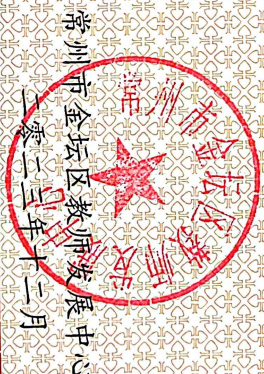 常州市金坛区教师发展中心
二零二三年十二月
常州市金坛区教师发展中心